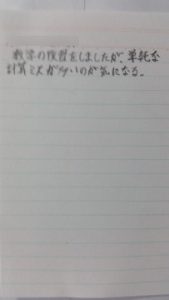 数学の復習をしましたが、単純な
計算ミスが多いのが気になる。